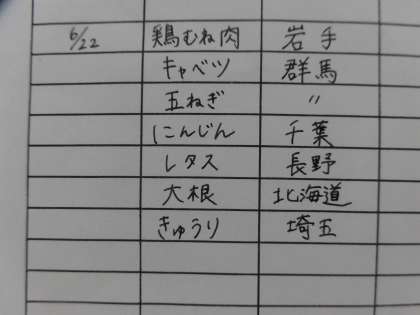 6/22 鶏むね肉 岩手
キャベツ 群馬
五ねぎ 〃
にんじん 千葉
レタス 長野
大根 北海道
きゅうり 埼五